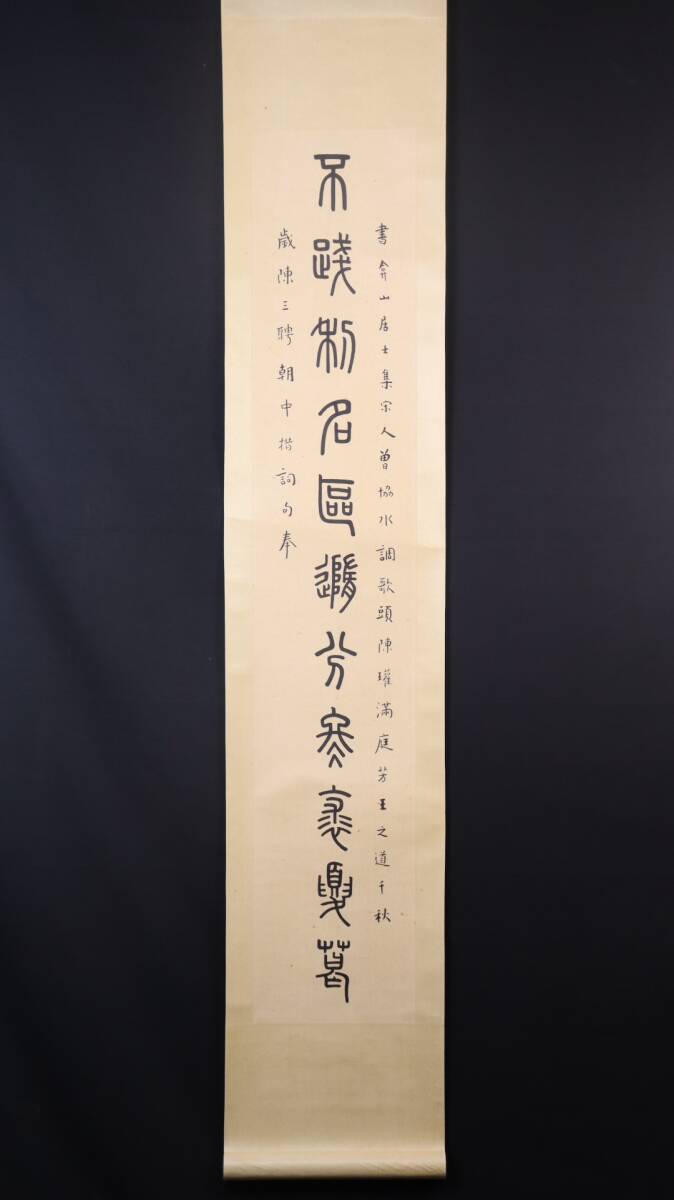 書弇山居士集宋人曾協水調歌頭陳瓘滿庭芳王之道千秋
不踐利名區隨分冬裘夏葛
歲陳三聘朝中措詞句奉